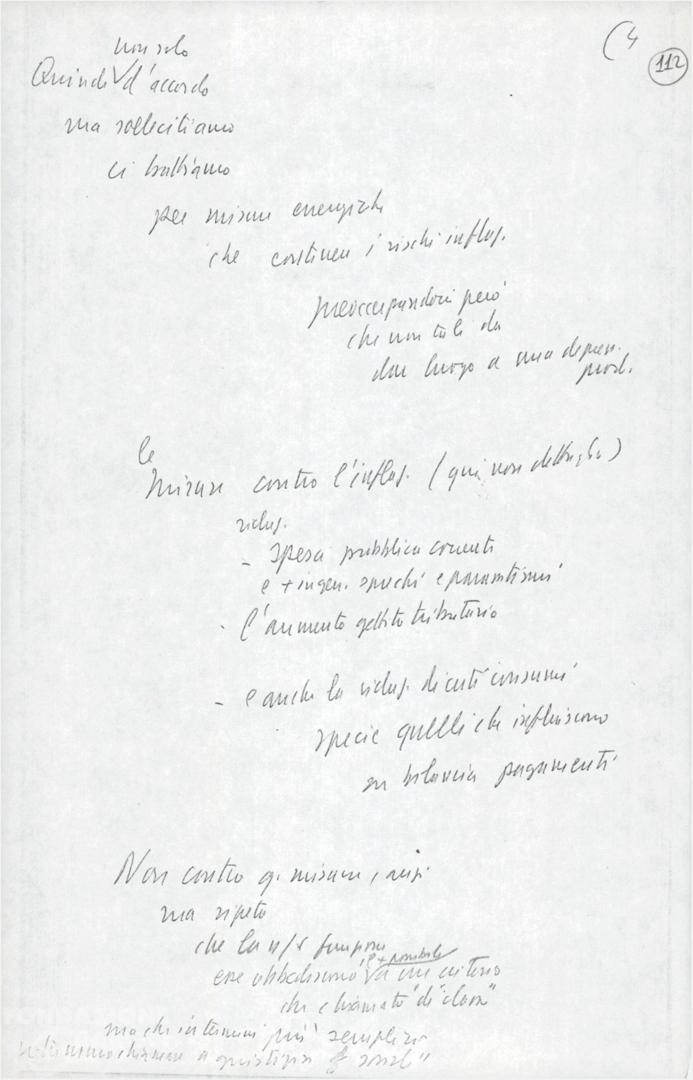 (4
112
non solo
Quindi √ d'accordo
ma sollecitiamo
ci battiamo
per misure energiche
che contenen i rischi inflaz.
preoccupandoci però
che non tali da
dar luogo a una depress.
prod.
le
misure contro l'inflaz. (qui non dettaglio)
riduz.
- spesa pubblica corrente
e + ingen. sprechi e parassitismi
- l'aumento gettito tributario
- e anche la riduz. di certi consumi
specie quelli che influiscono
su bilancia pagamenti
Non contro q. misure, anzi
ma ripeto
che la n/s
e + possibile
√ a un criterio
che chiamato "di
ma che in termini più semplici
"